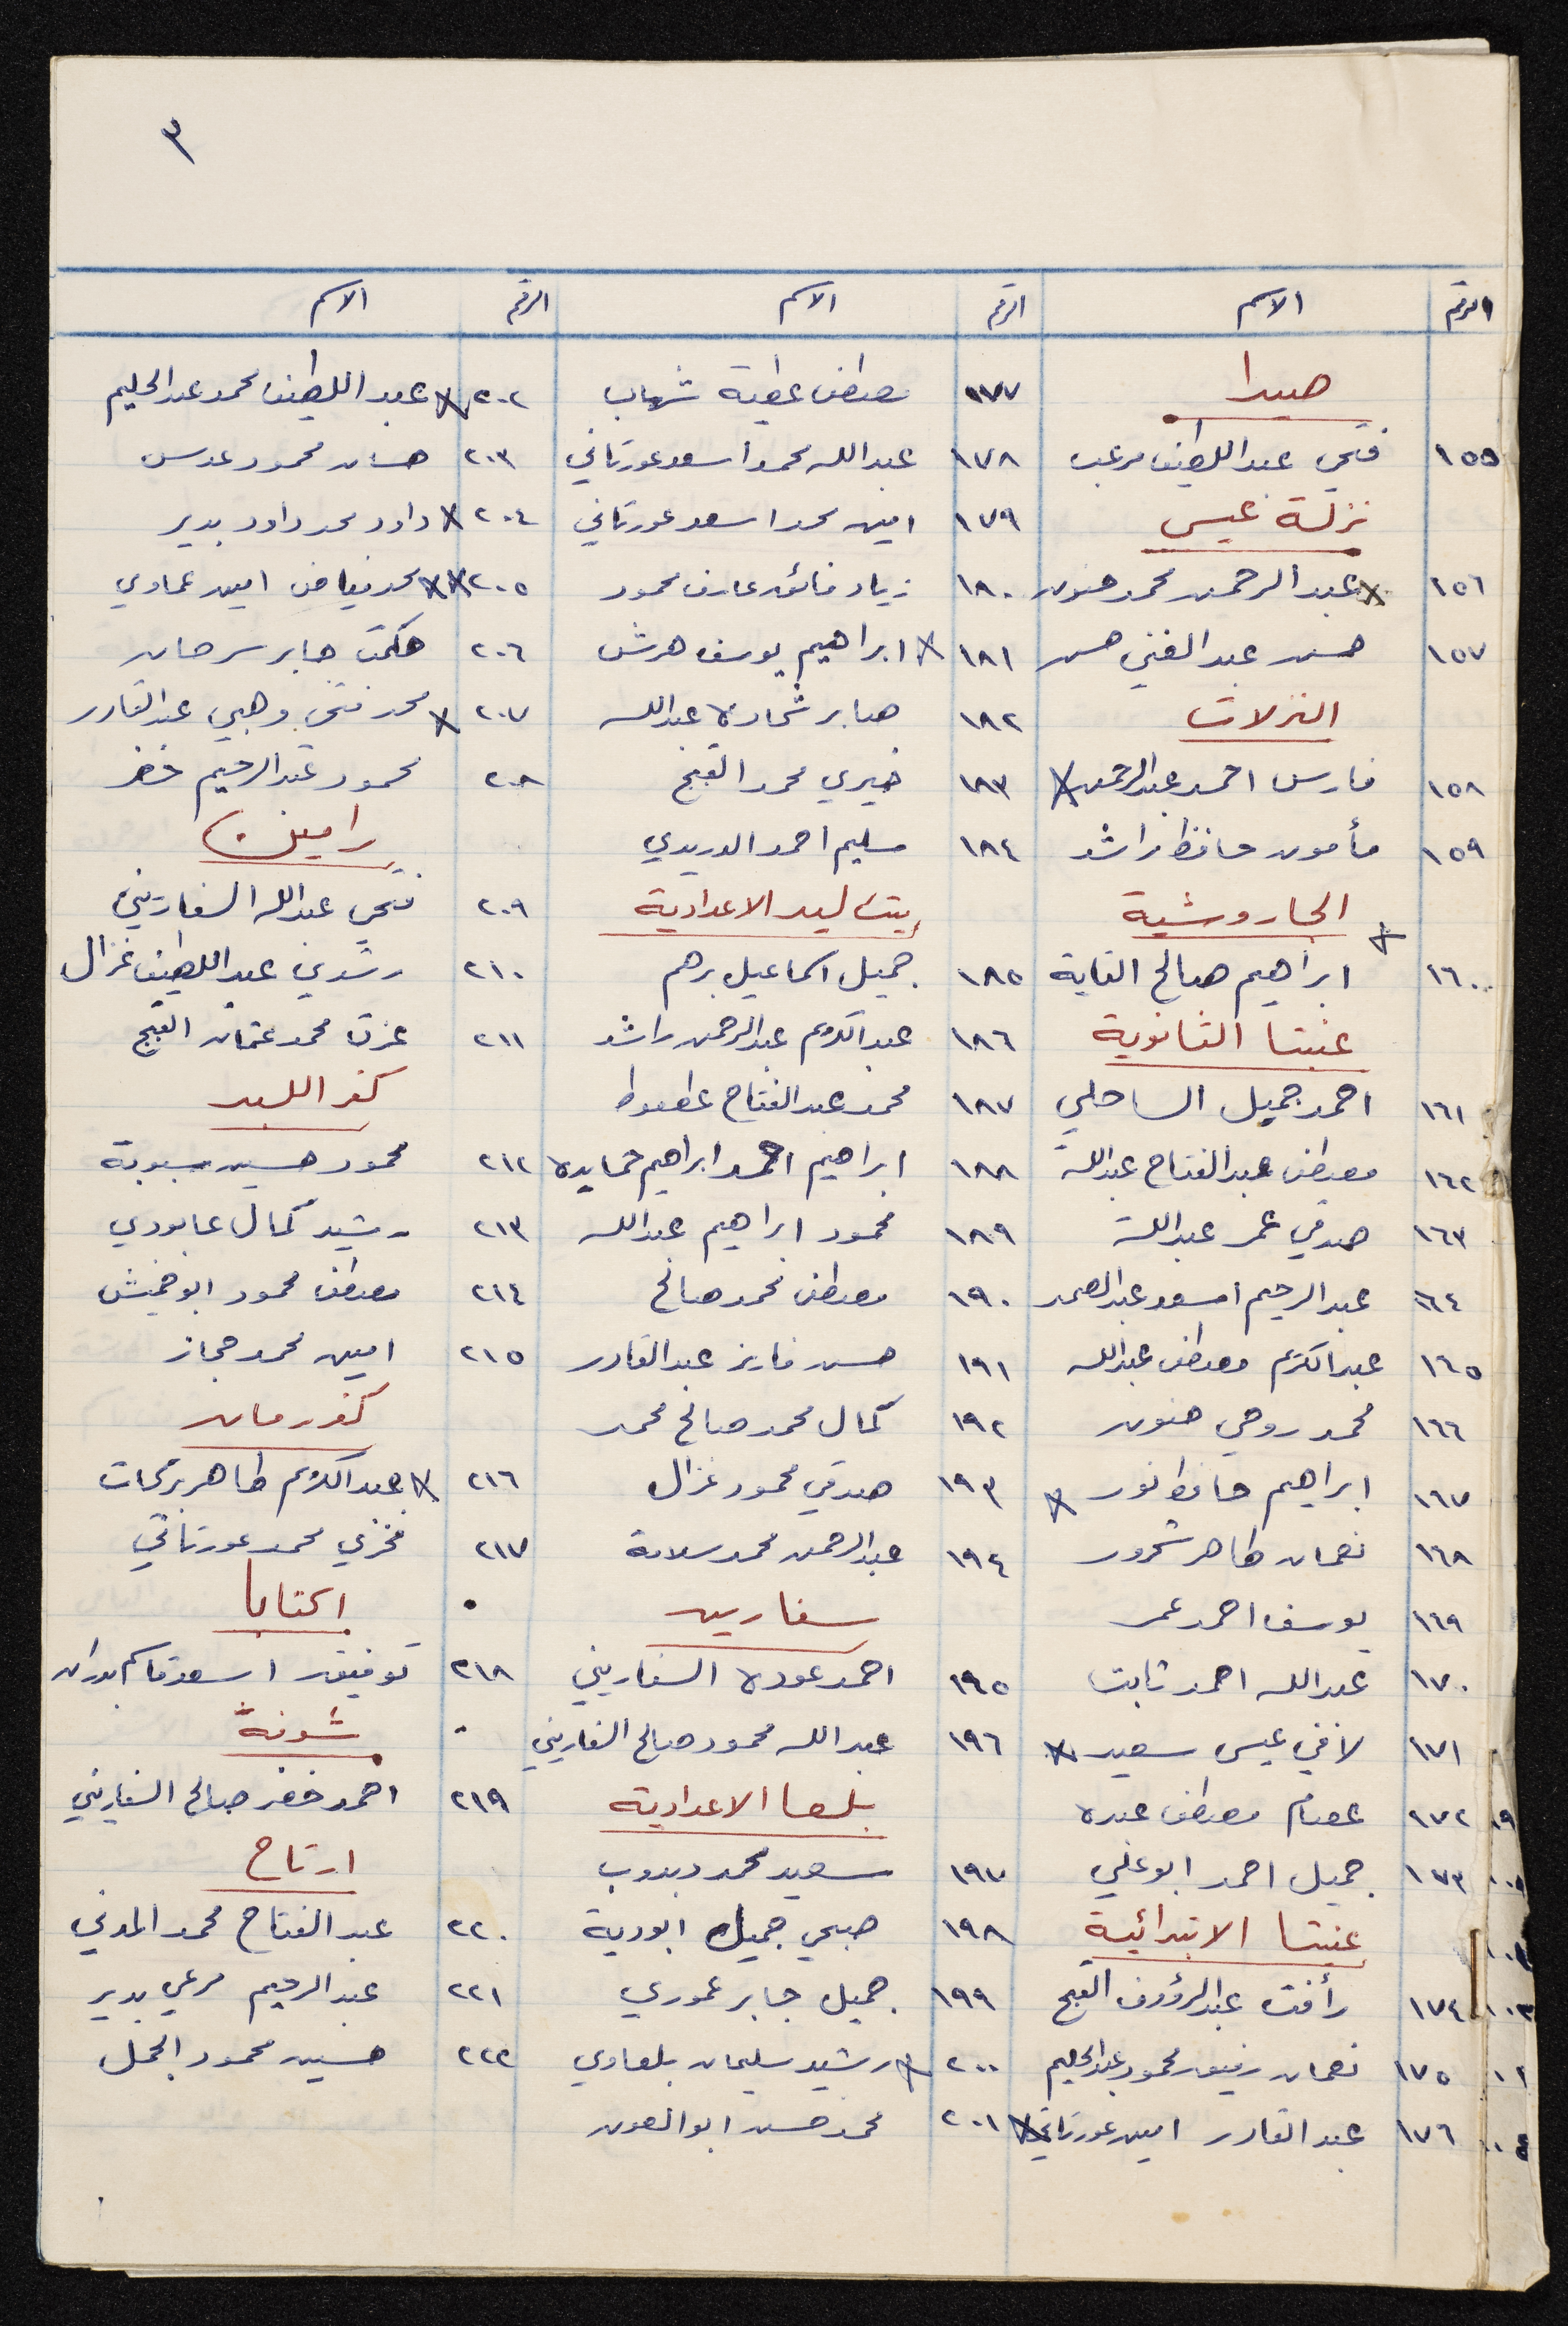 ٣
الرقم الاسم الرقم الاسم الرقم الاسم
صيدا
١٥٥ فتحي عبد اللطيف مرعب
نزلة عيسى
١٥٦ عبد الرحمن محمد حنون
١٥٧ حسن عبد الغني حسن
النزلات
١٥٨ فارس احمد عبد الرحمن
١٥٩ مأمون حافظ راشد
الجاروشية
١٦٠ ابراهيم صالح الغاية
عنبتا الثانوية
١٦١ احمد جميل الساحلي
١٦٢ مصطفى عبد الفتاح عبدالله
١٦٣ صدقي عمر عبدالله
١٦٤ عبد الرحيم اسعد عبد الصمد
١٦٥ عبد الكريم مصطفى عبدالله
١٦٦ محمد روحي حنون
١٦٧ ابراهيم حافظ نور
١٦٨ نعمان طاهر شحرور
١٦٩ يوسف احمد عمر
١٧٠ عبدالله احمد ثابت
١٧١ لافي عيسى سعيد
١٧٢ عصام مصطفى عبده
١٧٣ جميل احمد ابو علي
عنبتا الابتدائية
١٧٤ رأفت عبد الرؤوف القبج
١٧٥ نعمان رفيق محمود عبد الحليم
١٧٦ عبد القادر امين عورتاني
١٧٧ مصطفى عطية شهاب
١٧٨ عبدالله محمد اسعد عورتاني
١٧٩ امين محمد اسعد عورتاني
١٨٠ زياد فائق عارف محمود
١٨١ ابراهيم يوسف هرش
١٨٢ صابر شحادة عبدالله
١٨٣ خيري محمد القبج
١٨٤ سليم احمد الدريدي
بيت ليد الاعدادية
١٨٥ جميل اسماعيل برهم
١٨٦ عبد الكريم عبد الرحمن راشد
١٨٧ محمد عبد الفتاح عطعوط
١٨٨ ابراهيم احمد ابراهيم حمايده
١٨٩ محمود ابراهيم عبدالله
١٩٠ مصطفى محمد صالح
١٩١ حسن فارز عبد القادر
١٩٢ كمال محمد صالح محمد
١٩٣ صدقي محمود غزال
١٩٤ عبد الرحمن محمد سلامة
سفارين
١٩٥ احمد عودة السفاريني
١٩٦ عبدالله محمود صالح السفاريني
بلعا الاعدادية
١٩٧ سعيد محمد دبدوب
١٩٨ صبحي جميل ابودية
١٩٩ جميل جابر عموري
٢٠٠ رشيد سليمان بلعاوي
٢٠١ محمد حسن ابو العون
٢٠٢ عبد اللطيف محمد عبد الحليم
٢٠٣ حسان محمود عدس
٢٠٤ داود محمد داود بدير
٢٠٥ محمد فياض امين عماوي
٢٠٦ حكمت جابر سرحان
٢٠٧ محمد فتحي وهبي عبد القادر
٢٠٨ محمود عبد الرحيم خضر
رامين
٢٠٩ فتحي عبدالله السفاريني
٢١٠ رشدي عبد اللطيف غزال
٢١١ عزت محمد عثمان القبج
كفر اللبد
٢١٢ محمود حسين سبوبة
٢١٣ رشيد كمال عابودي
٢١٤ مصطفى محمود ابو خميش
٢١٥ امين محمد حجاز
كفر رمان
٢١٦ عبد الكريم طاهر بركات
٢١٧ فخري محمد عورتاني
اكتابا
٢١٨ توفيق اسعد قاسم بدران
شوفة
٢١٩ احمد خضر صالح السفاريني
ارتاح
٢٢٠ عبد الفتاح محمد المدني
٢٢١ عبد الرحيم مرعي بدير
٢٢٢ حسين محمود الجمل